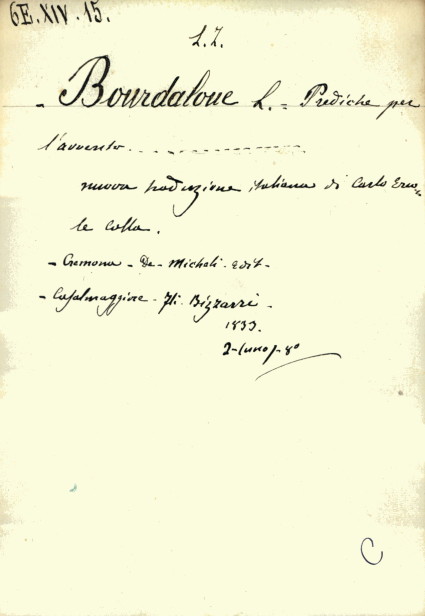 6E.XIV.15.
L.Z.
- Bourdaloue L. = Prediche per
l'avvento.
nuova traduzione italiana di Carlo Erco-
le Colla.
- Cremona - De-Micheli - edit -
- Casalmaggiore - Fli. Bizzarri -
1833.
2-(uno)-8°
C